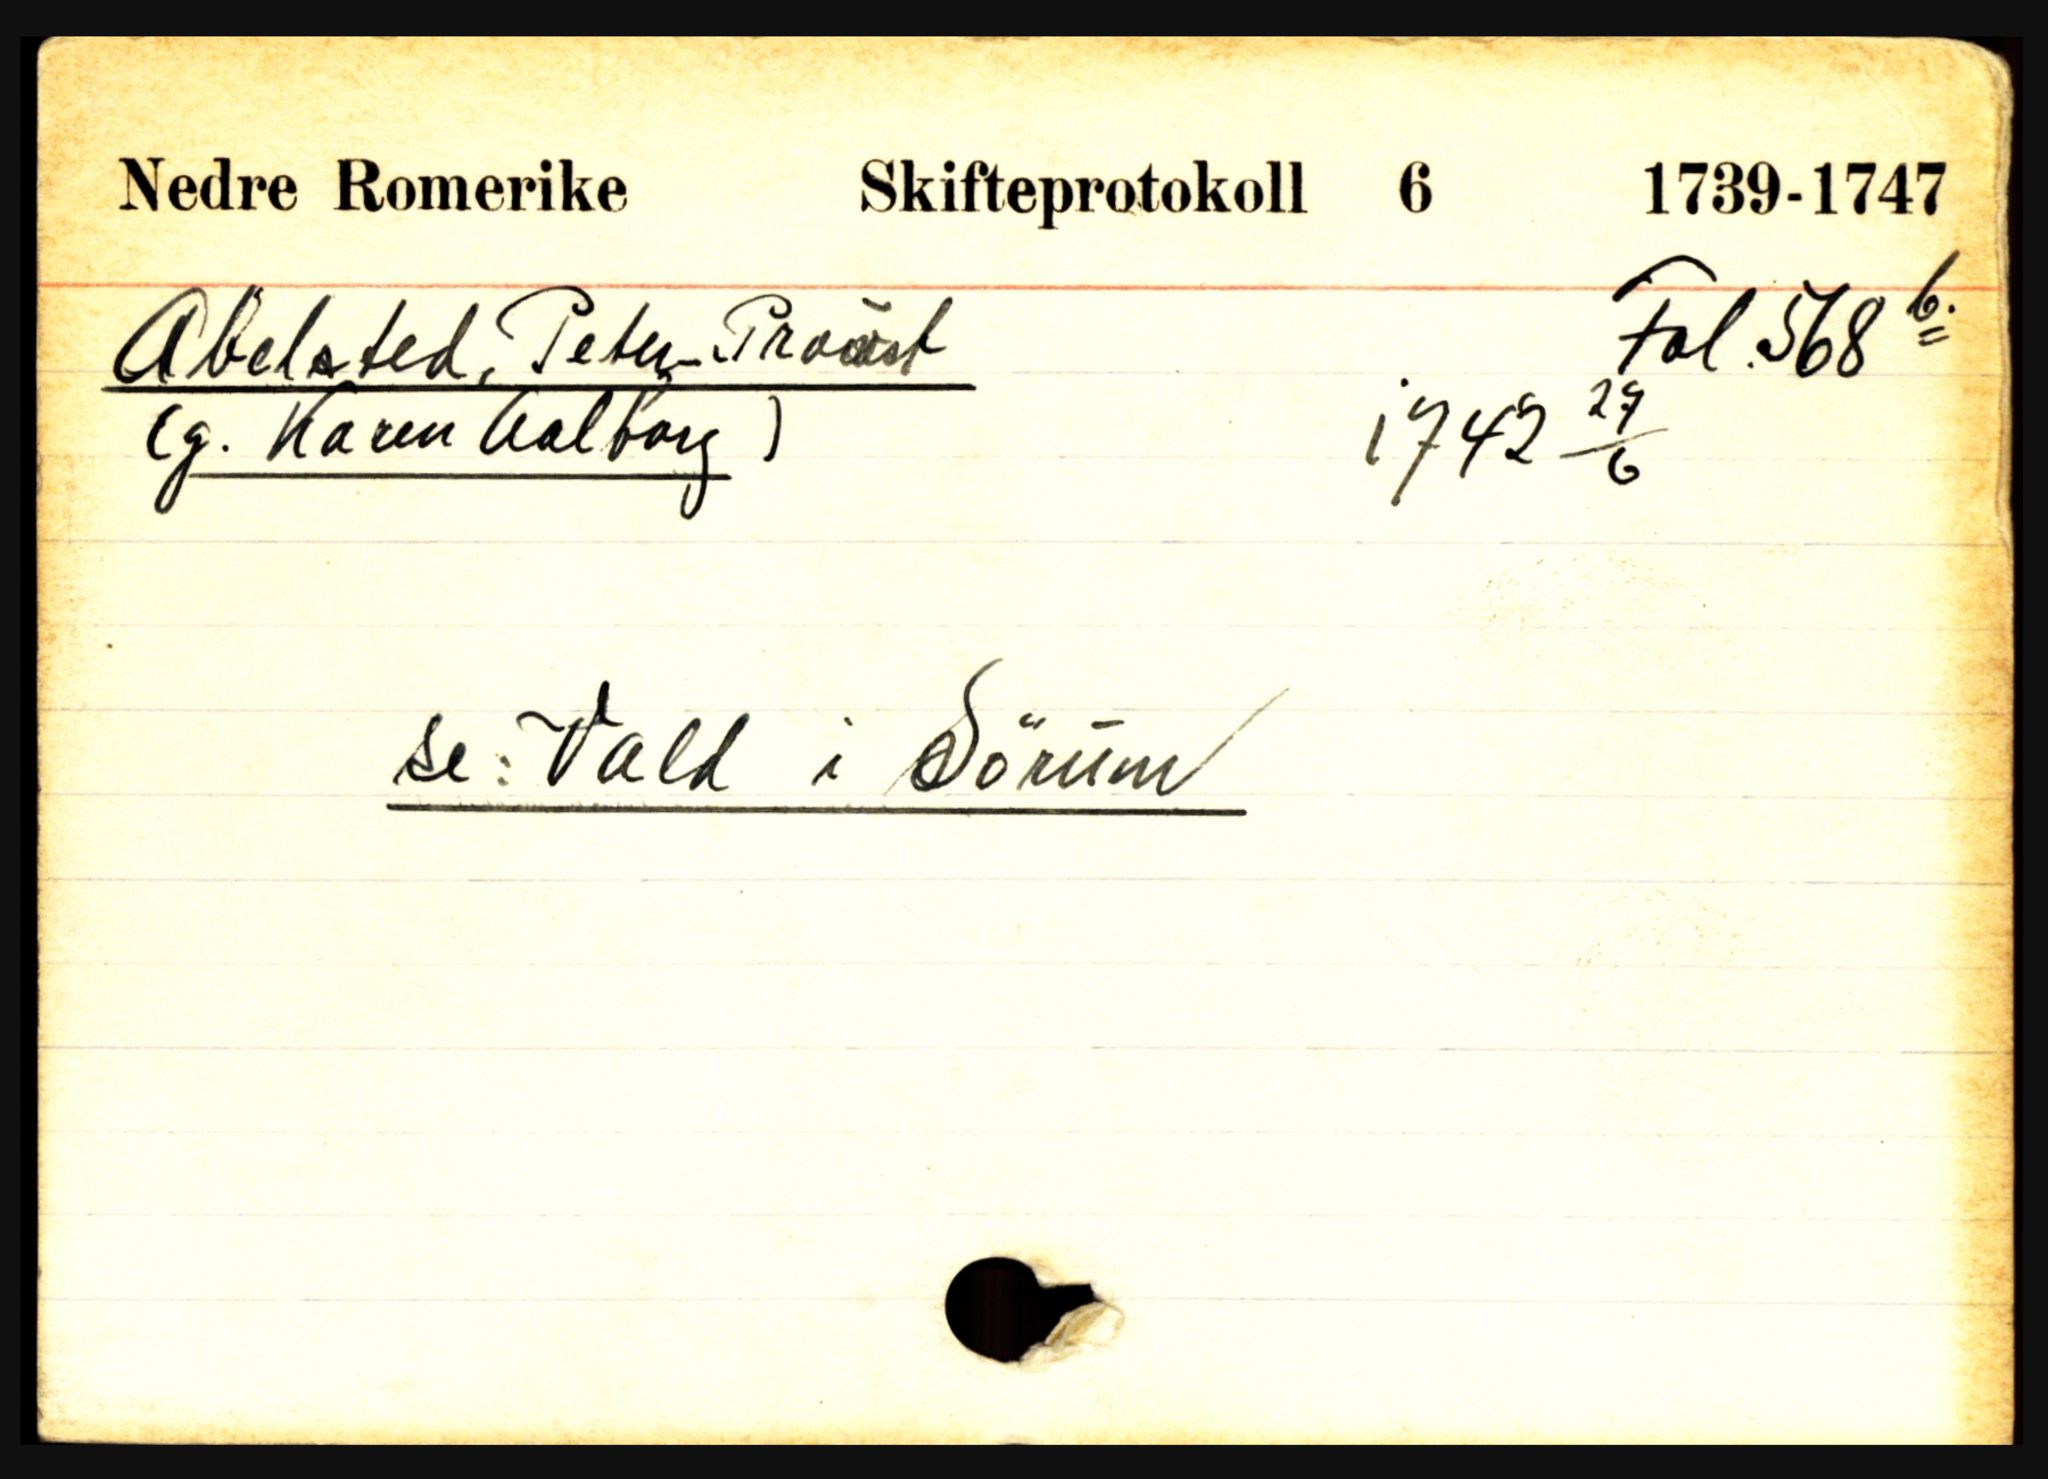 Nedre Romerike Skifteprotokoll 6 1739-1747
Abelsted, Peter Provst Fol. 568 b.
(g. Karen Aalborg) 1742 27/6
se: Vald i Sörum